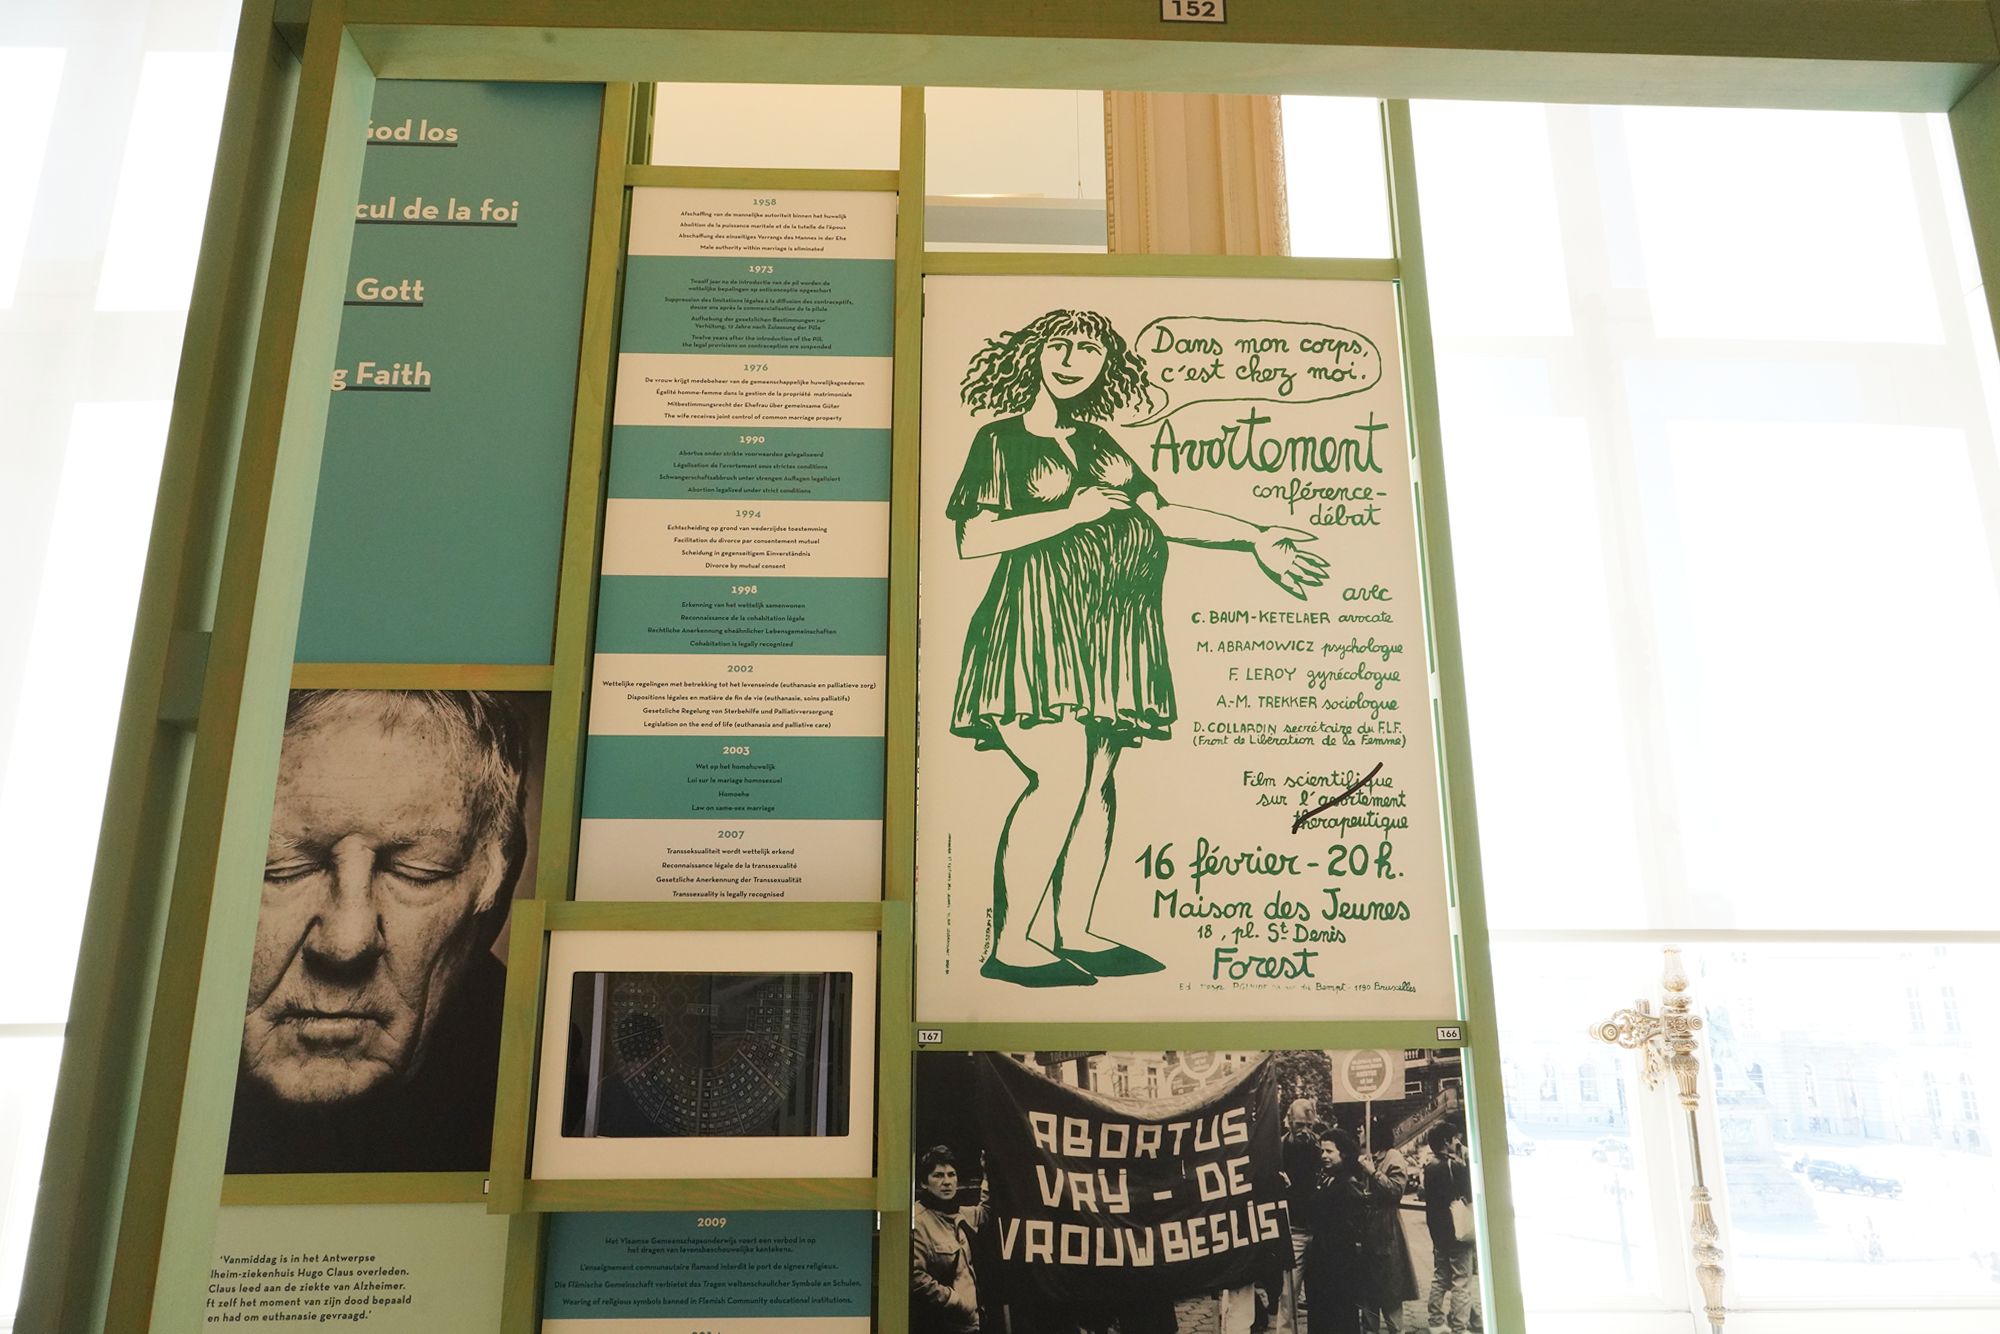 152
God los
cul de la foi
Gott
g Faith
1958
Afschaffing van de mannelijke autoriteit binnen het huwelijk
Abolition de la puissance maritale et de la tutelle de l'époux
Abschaffung des einseitiges Vorrangs des Mannes in der Ehe
Male authority within marriage is eliminated
1973
Twaalf jaar na de introductie van de pil worden de
wettelijke bepalingen op anticonceptie opgeschort
Suppression des limitations légales à la diffusion des contraceptifs,
douze ans après la commercialisation de la pilule
Aufhebung der gesetzlichen Bestimmungen zur
Verhütung, 12 Jahre nach Zulassung der Pille
Twelve years after the introduction of the Pill,
the legal provisions on contraception are suspended
1976
De vrouw krijgt medebeheer van de gemeenschappelijke huwelijksgoederen
Égalité homme-femme dans la gestion de la propriété matrimoniale
Mitbestimmungsrecht der Ehefrau über gemeinsame Güter
The wife receives joint control of common marriage property
1990
Abortus onder strikte voorwaarden gelegaliseerd
Légalisation de l'avortement sous strictes conditions
Schwangerschaftsabbruch unter strengen Auflagen legalisiert
Abortion legalized under strict conditions
1994
Echtscheiding op grond van wederzijdse toestemming
Facilitation du divorce par consentement mutuel
Scheidung in gegenseitigem Einverständnis
Divorce by mutual consent
1998
Erkenning van het wettelijk samenwonen
Reconnaissance de la cohabitation légale
Rechtliche Anerkennung eheähnlicher Lebensgemeinschaften
Cohabitation is legally recognized
2002
Wettelijke regelingen met betrekking tot het levenseinde (euthanasie en palliatieve zorg)
Dispositions légales en matière de fin de vie (euthanasie, soins palliatifs)
Gesetzliche Regelung von Sterbehilfe und Palliativversorgung
Legislation on the end of life (euthanasia and palliative care)
2003
Wet op het homohuwelijk
Loi sur le mariage homosexuel
Homoehe
Law on same-sex marriage
2007
Transseksualiteit wordt wettelijk erkend
Reconnaissance légale de la transsexualité
Gesetzliche Anerkennung der Transsexualität
Transsexuality is legally recognised
2009
Het Vlaamse Gemeenschapsonderwijs voert een verbod in op
het dragen van levensbeschouwelijke kentekens.
L'enseignement communautaire flamand interdit le port de signes religieux.
Die Flämische Gemeinschaft verbietet das Tragen weltanschaulicher Symbole an Schulen.
Wearing of religious symbols banned in Flemish Community educational institutions.
'Vanmiddag is in het Antwerpse
lheim-ziekenhuis Hugo Claus overleden.
Claus leed aan de ziekte van Alzheimer.
ft zelf het moment van zijn dood bepaald
en had om euthanasie gevraagd.'
Dans mon corps,
c'est chez moi.
Avortement
conférence-
débat
avec
C. BAUM-KETELAER avocate
M. ABRAMOWICZ psychologue
F. LEROY gynécologue
A.-M. TREKKER sociologue
D. COLLARDIN secrétaire du F.L.F.
(Front de Libération de la Femme)
Film scientifique
sur l'avortement
thérapeutique
16 février - 20h.
Maison des Jeunes
18, pl. St Denis
Forest
Bempt - 1190 Bruxelles
167
166
ABORTUS
VRIJ - DE
VROUW BESLIST